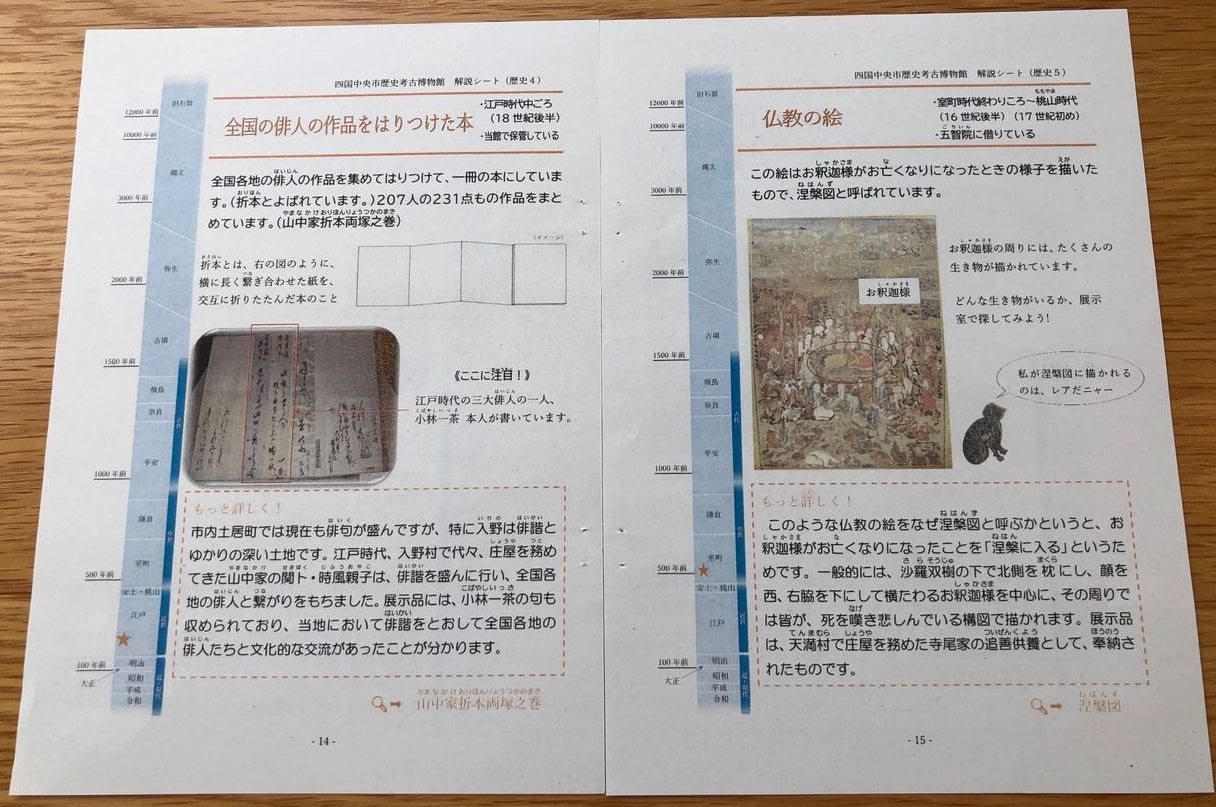 四国中央市歴史考古博物館 解説シート(歴史4)
全国の俳人の作品をはりつけた本
・江戸時代中ごろ
(18世紀後半)
・当館で保管している
全国各地の俳人の作品を集めてはりつけて、一冊の本にしていま
す。(折本とよばれています。)207人の231点もの作品をまと
めています。(山中家折本両塚之巻)
(イメージ)
折本とは、右の図のように、
横に長く繋ぎ合わせた紙を、
交互に折りたたんだ本のこと
《ここに注目!》
江戸時代の三大俳人の一人、
小林一茶 本人が書いています。
もっと詳しく!
市内土居町では現在も俳句が盛んですが、特に入野は俳諧と
ゆかりの深い土地です。江戸時代、入野村で代々、庄屋を務め
てきた山中家の関卜・時風親子は、俳諧を盛んに行い、全国各
地の俳人と繋がりをもちました。展示品には、小林一茶の句も
収められており、当地において俳諧をとおして全国各地の
俳人たちと文化的な交流があったことが分かります。
山中家折本両塚之巻
12000年前
10000年前
3000年前
2000年前
1500年前
1000年前
500年前
100年前
旧石器
縄文
弥生
古墳
飛鳥
奈良
平安
鎌倉
室町
安土・桃山
江戸
明治
大正
昭和
平成
令和
古代
中世
近世
近・現代
- 14 -
四国中央市歴史考古博物館 解説シート(歴史5)
仏教の絵
・室町時代終わりころ～桃山時代
(16世紀後半) (17世紀初め)
・五智院に借りている
この絵はお釈迦様がお亡くなりになったときの様子を描いた
もので、涅槃図と呼ばれています。
お釈迦様
お釈迦様の周りには、たくさんの
生き物が描かれています。
どんな生き物がいるか、展示
室で探してみよう!
私が涅槃図に描かれる
のは、レアだニャー
もっと詳しく!
このような仏教の絵をなぜ涅槃図と呼ぶかというと、お
釈迦様がお亡くなりになったことを「涅槃に入る」というた
めです。一般的には、沙羅双樹の下で北側を枕にし、顔を
西、右脇を下にして横たわるお釈迦様を中心に、その周りで
は皆が、死を嘆き悲しんでいる構図で描かれます。展示品
は、天満村で庄屋を務めた寺尾家の追善供養として、奉納さ
れたものです。
涅槃図
12000年前
10000年前
3000年前
2000年前
1500年前
1000年前
500年前
100年前
旧石器
縄文
弥生
古墳
飛鳥
奈良
平安
鎌倉
室町
安土・桃山
江戸
明治
大正
昭和
平成
令和
古代
中世
近世
近・現代
- 15 -